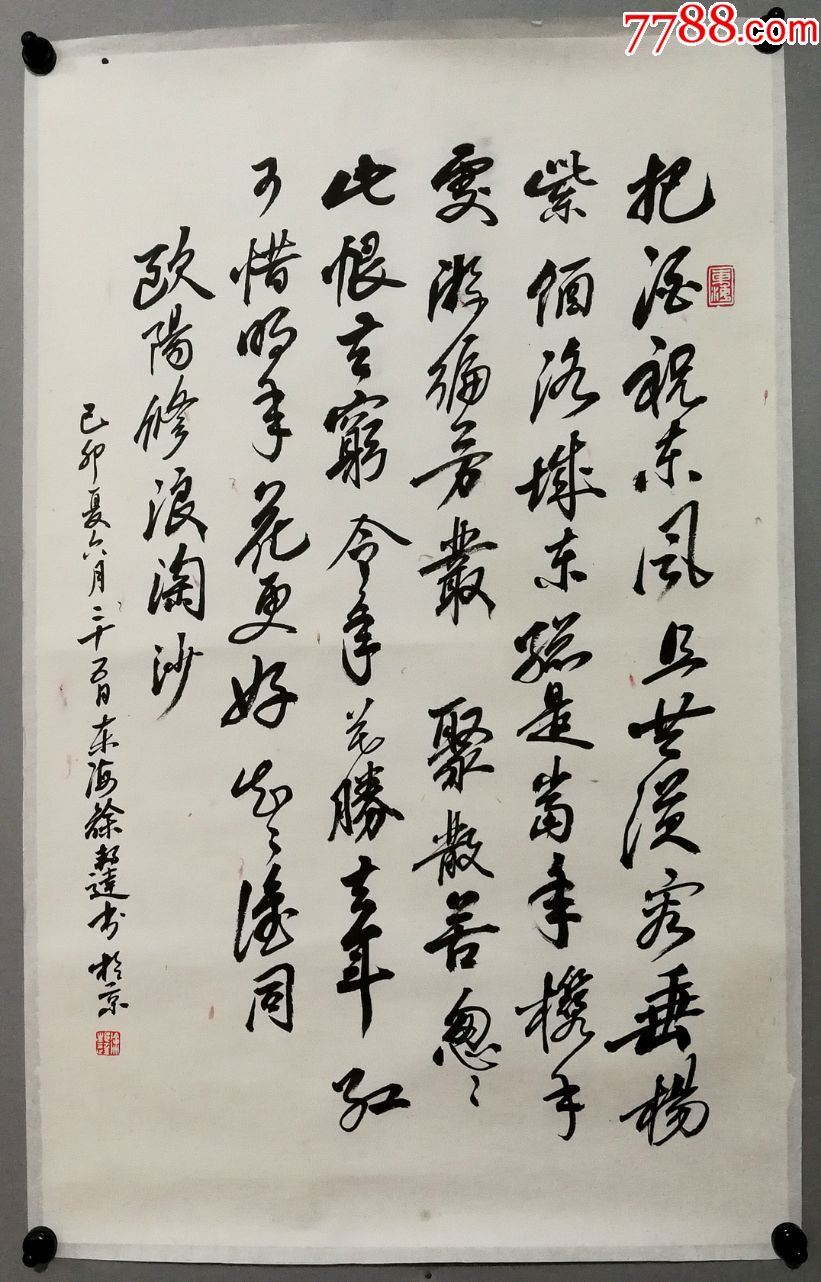 7788.com
把酒祝东風且共從容垂楊
紫陌洛城东總是當年攜手
處游徧芳叢 聚散苦怱〻
此恨无窮今年花勝去年紅
可惜明年花更好知与誰同
歐陽修浪淘沙
己卯夏六月二十五日东海徐邦達书於京